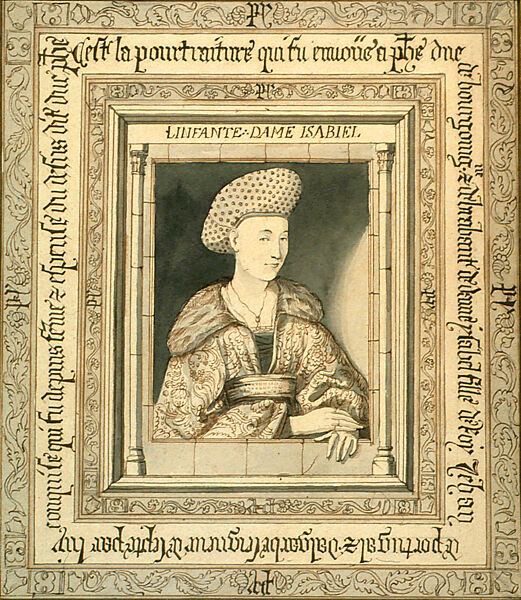 Cest la pourtraiture qui fu envoiie a phe duc
de bourgoingne & de brabant de dame ysabel fille de Roy Jehan
de portugal & dalgarbe seigneur de septe par luy
conquise qui fu depuis feme & espeuse du desus dit duc phe
LINFANTE · DAME ISABIEL